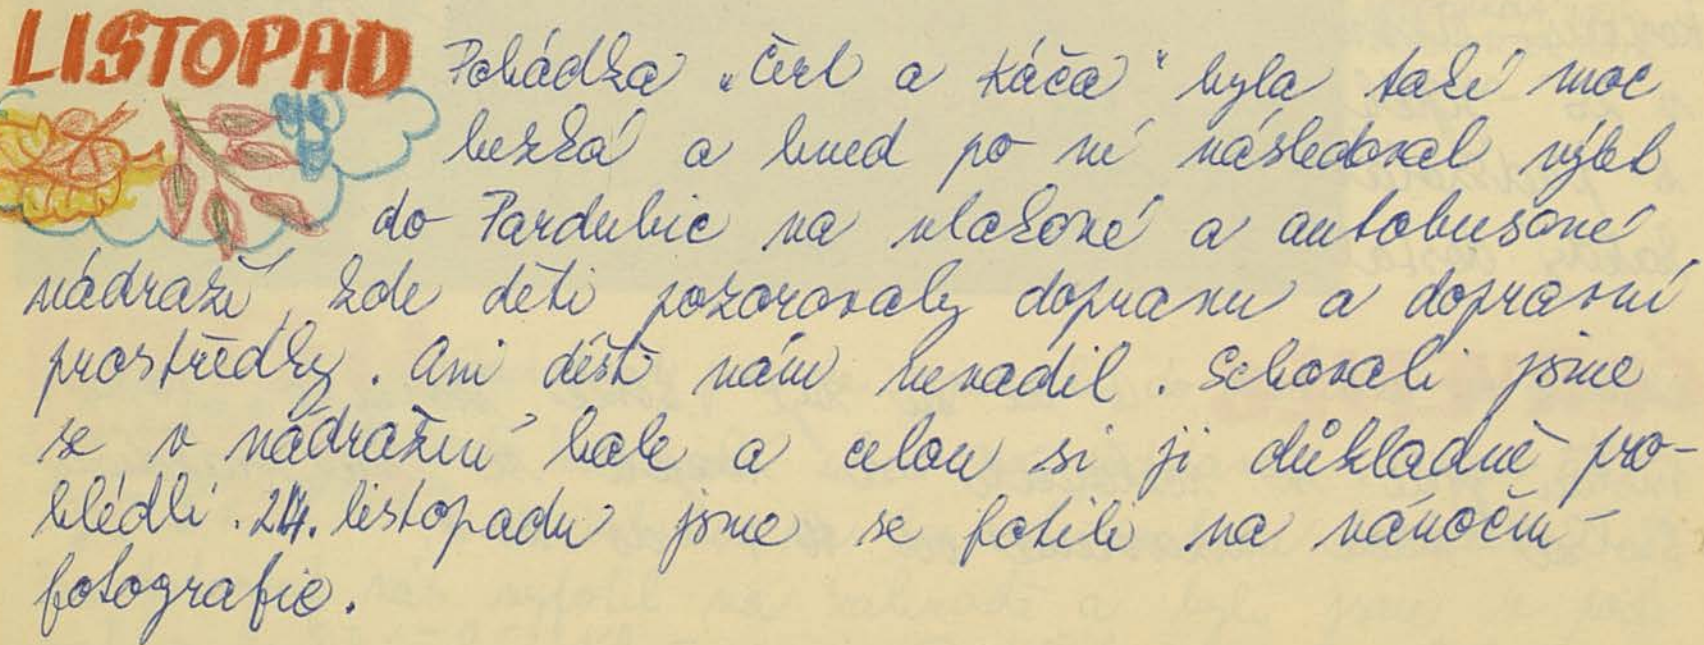 LISTOPAD
Pohádka „Čert a Káča" byla také moc
hezká a hned po ní následoval výlet
do Pardubic na vlakové a autobusové
nádraží, kde děti pozorovaly dopravu a dopravní
prostředky. Ani déšť nám nevadil. Schovali jsme
se v nádražní hale a celou si ji důkladně pro-
hlédli. 24. listopadu jsme se fotili na vánoční
fotografie.